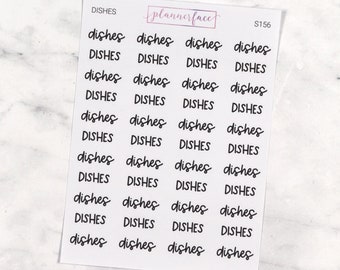 DISHES plannerface S156
dishes dishes dishes dishes
DISHES DISHES DISHES DISHES
dishes dishes dishes dishes
DISHES DISHES DISHES DISHES
dishes dishes dishes dishes
DISHES DISHES DISHES DISHES
dishes dishes dishes dishes
DISHES DISHES DISHES DISHES
dishes dishes dishes dishes
DISHES DISHES DISHES DISHES
dishes dishes dishes dishes